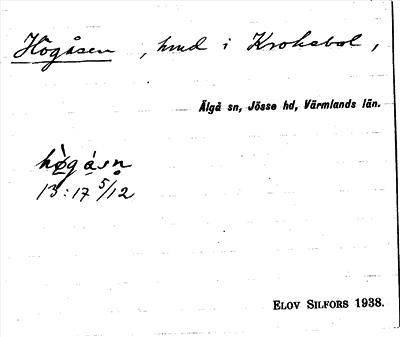 Högåsen, hmd i Kroksbol,
Älgå sn, Jösse hd, Värmlands län.
hø̀gásn̥
13:17 5/12
ELOV SILFORS 1938.